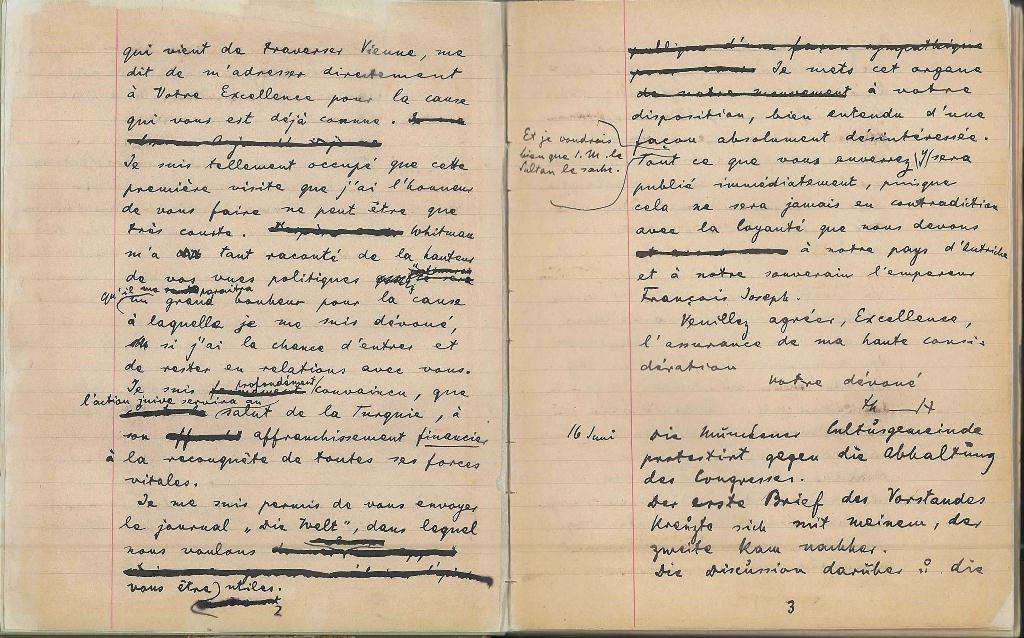 qui vient de traverser Vienne, me
dit de m'adresser directement
à Votre Excellence pour la cause
qui vous est déjà connue.
Je suis tellement occupé que cette
première visite que j'ai l'honneur
de vous faire ne peut être que
très courte. Whitman
m'a tant raconté de la hauteur
de vos vues politiques
qu'il me paraîtra
un grand bonheur pour la cause
à laquelle je me suis dévoué,
si j'ai la chance d'entrer et
de rester en relations avec vous.
Je suis profondément convaincu, que
l'action juive servira au
salut de la Turquie, à
son affranchissement financier
à la reconquête de toutes ses forces
vitales.
Je me suis permis de vous envoyer
le journal „Die Welt", dans lequel
nous voulons
vous être) utiles.
2
publique d'une façon sympathique
Je mets cet organe
de notre mouvement à votre
disposition, bien entendu d'une
façon absolument désintéressée.
Et je voudrais
bien que S. M. le
Sultan le sache.
Tout ce que vous enverrez y sera
publié immédiatement, puisque
cela ne sera jamais en contradiction
avec la loyauté que nous devons
à notre pays d'Autriche
et à notre souverain l'empereur
François Joseph.
Veuillez agréer, Excellence,
l'assurance de ma haute consi-
dération
votre dévoué
Th H
16 Juni
Die Münchener Cultusgemeinde
protestirt gegen die Abhaltung
des Congresses.
Der erste Brief des Vorstandes
kreuzte sich mit meinem, der
zweite kam nachher.
Die Discussion darüber u. die
3